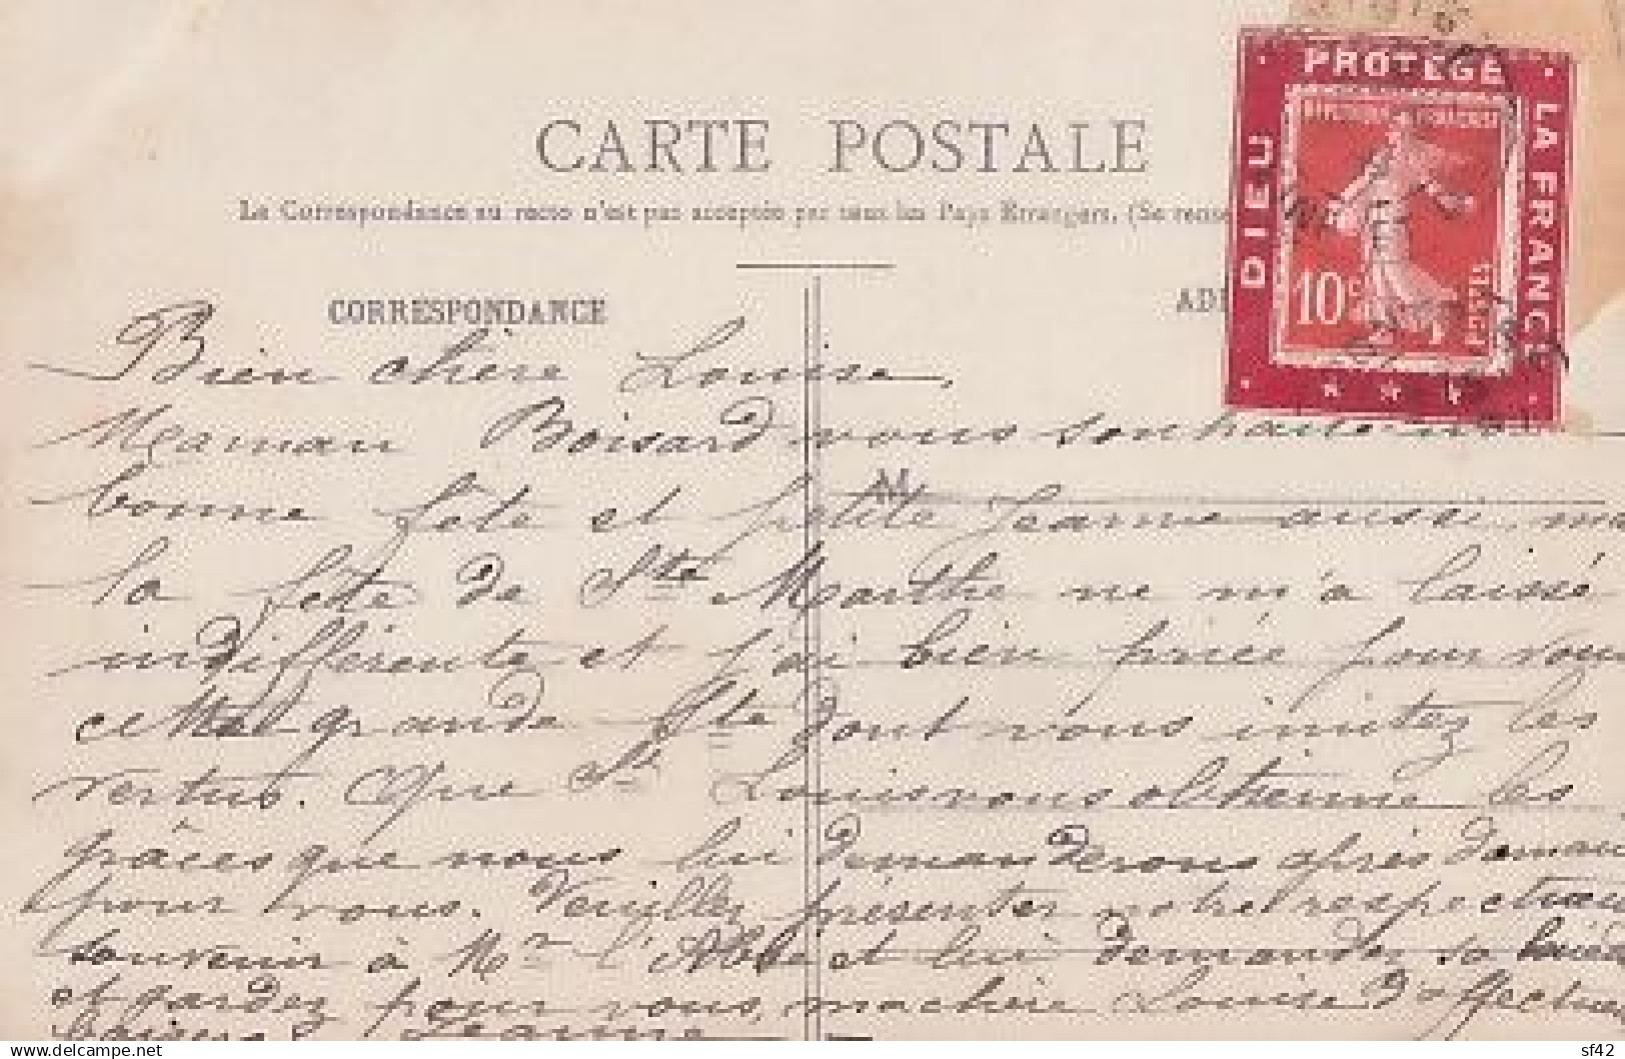 CARTE POSTALE
Le Correspondance au recto n'est pas acceptée par tous les Pays Etrangers. (Se rense
CORRESPONDANCE
AD
DIEU PROTÈGE LA FRANCE
RÉPUBLIQUE FRANÇAISE
10c
POSTES
M
Bien chère Louise,
Maman Boisard vous souhaite
bonne fête et petite Jeanne aussi, ma
la fête de Ste Marthe ne m'a laissé
indifférente et j'ai bien priée pour vous
cette grande Ste dont vous imitez les
vertus. Que St Louis vous obtienne les
grâces que nous lui demanderons après demain
pour vous. Veuillez présenter notre respectueux
souvenir à Mr l'Abbé et lui demander sa
et gardez pour vous, ma chère Louise d'affectueux
baisers. Jeanne
delcampe.net
sf42